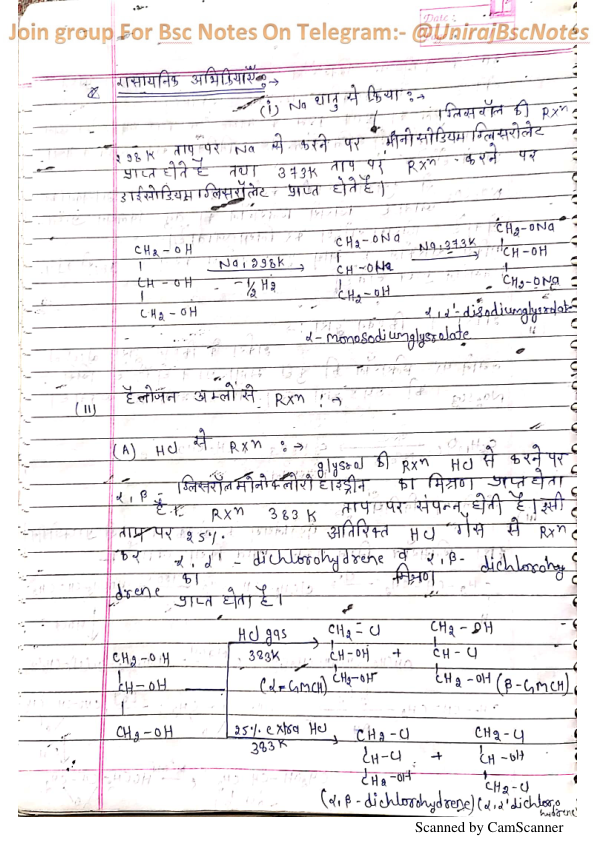 Join group For Bsc Notes On Telegram:- @UnirajBscNotes
Date :
रासायनिक अभिक्रियाएँ :→
(i) Na धातु से क्रिया :→
ग्लिसरॉल की Rxⁿ
298K ताप पर Na से करने पर मोनोसोडियम ग्लिसरोलेट
प्राप्त होते है तथा 373K ताप पर Rxⁿ करने पर
डाईसोडियम ग्लिसरॉलेट प्राप्त होते है।
CH₂-OH CH₂-ONa CH₂-ONa
CH-OH Na, 298K -½H₂ CH-ONa Na, 373K CH-OH
CH₂-OH CH₂-OH CH₂-ONa
α,α'-disodiumglysrolate
α-monosodiumglysrolate
(II) हैलोजन अम्लो से Rxⁿ :→
(A) HCl से Rxⁿ :→
glysrol की Rxⁿ HCl से करने पर
α,β- ग्लिसरॉल मोनोक्लोरो हाइड्रीन का मिश्रण प्राप्त होता
है। Rxⁿ 383K ताप पर संपन्न होती है। इसी
ताप पर 25% अतिरिक्त HCl गैस से Rxⁿ
कर α,α'-dichlorohydrene व α,β-dichlorohy
drene का मिश्रण प्राप्त होता है।
HCl gas CH₂-Cl CH₂-OH
CH₂-OH 383K CH-OH + CH-Cl
CH-OH (α-GMCH) CH₂-OH CH₂-OH (β-GMCH)
CH₂-OH 25% extra HCl 383K CH₂-Cl CH₂-Cl
CH-Cl + CH-OH
CH₂-OH CH₂-Cl
(α,β-dichlorohydrene) (α,α'dichloro
hydrene
Scanned by CamScanner